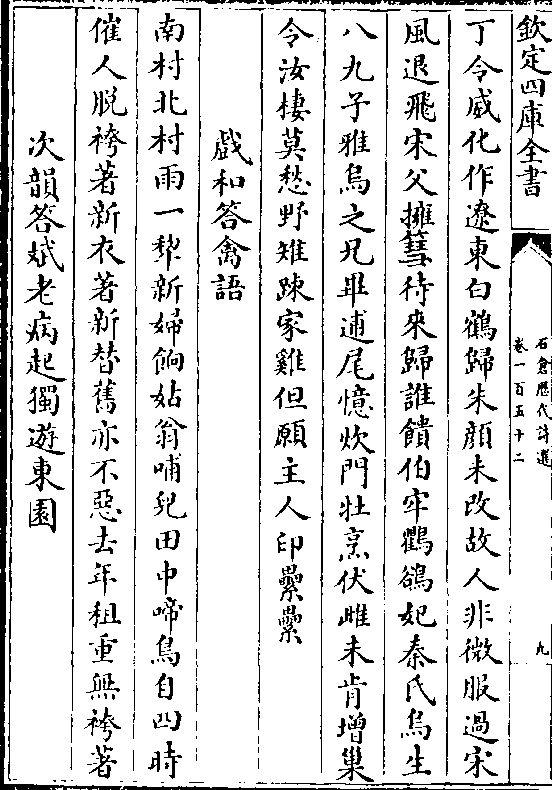 欽定四庫全書
石倉歷代詩選
卷一百五十二
九
丁令威化作遼東白鶴歸朱顔未改故人非微服過宋
風退飛宋父擁篲待來歸誰饋伯牢鸛鵒妃秦氏烏生
八九子雅烏之兄畢逋尾憶炊門牡烹伏雌未肯增巢
令汝棲莫愁野雉踈家雞但願主人印纍纍
戲和答禽語
南村北村雨一犂新婦餉姑翁哺兒田中啼鳥自四時
催人脫袴著新衣著新替舊亦不惡去年租重無袴著
次韻答斌老病起獨遊東園